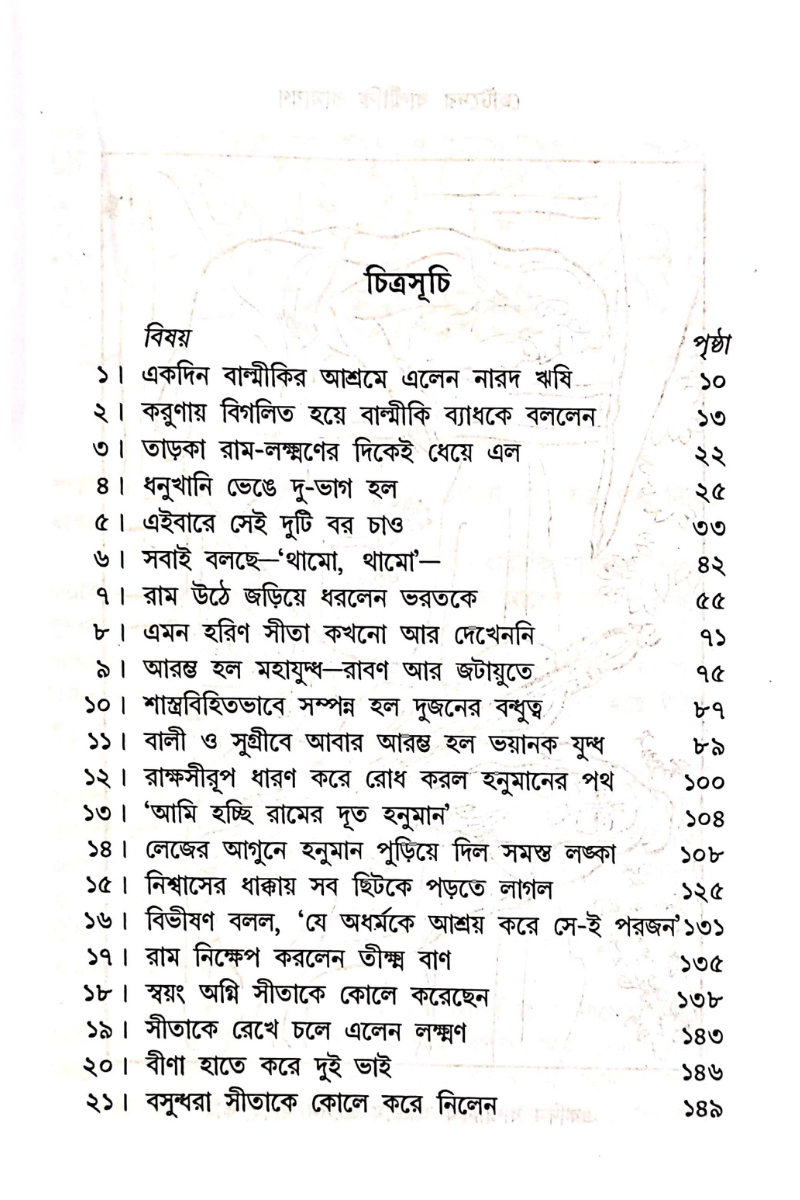 চিত্রসূচি
বিষয় পৃষ্ঠা
১। একদিন বাল্মীকির আশ্রমে এলেন নারদ ঋষি ১০
২। করুণায় বিগলিত হয়ে বাল্মীকি ব্যাধকে বললেন ১৩
৩। তাড়কা রাম-লক্ষ্মণের দিকেই ধেয়ে এল ২২
৪। ধনুখানি ভেঙে দু-ভাগ হল ২৫
৫। এইবারে সেই দুটি বর চাও ৩৩
৬। সবাই বলছে—‘থামো, থামো’— ৪২
৭। রাম উঠে জড়িয়ে ধরলেন ভরতকে ৫৫
৮। এমন হরিণ সীতা কখনো আর দেখেননি ৭১
৯। আরম্ভ হল মহাযুদ্ধ—রাবণ আর জটায়ুতে ৭৫
১০। শাস্ত্রবিহিতভাবে সম্পন্ন হল দুজনের বন্ধুত্ব ৮৭
১১। বালী ও সুগ্রীবে আবার আরম্ভ হল ভয়ানক যুদ্ধ ৮৯
১২। রাক্ষসীরূপ ধারণ করে রোধ করল হনুমানের পথ ১০০
১৩। ‘আমি হচ্ছি রামের দূত হনুমান’ ১০৪
১৪। লেজের আগুনে হনুমান পুড়িয়ে দিল সমস্ত লঙ্কা ১০৮
১৫। নিশ্বাসের ধাক্কায় সব ছিটকে পড়তে লাগল ১২৫
১৬। বিভীষণ বলল, ‘যে অধর্মকে আশ্রয় করে সে-ই পরজন’ ১৩১
১৭। রাম নিক্ষেপ করলেন তীক্ষ্ম বাণ ১৩৫
১৮। স্বয়ং অগ্নি সীতাকে কোলে করেছেন ১৩৮
১৯। সীতাকে রেখে চলে এলেন লক্ষ্মণ ১৪৩
২০। বীণা হাতে করে দুই ভাই ১৪৬
২১। বসুন্ধরা সীতাকে কোলে করে নিলেন ১৪৯